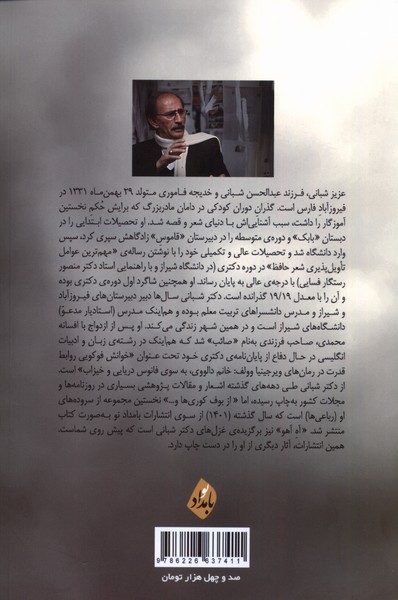 عزیز شبانی، فرزند عبدالحسن شبانی و خدیجه فاموری متولد ۲۹ بهمن‌ماه ۱۳۳۱ در
فیروزآباد فارس است. گذران دوران کودکی در دامان مادربزرگ که برایش حُکم نخستین
آموزگار را داشت، سبب آشنایی‌اش با دنیای شعر و قصه شد. او تحصیلات ابتدایی را در
دبستان «بابک» و دوره‌ی متوسطه را در دبیرستان «قاموس» زادگاهش سپری کرد، سپس
وارد دانشگاه شد و تحصیلات عالی و تکمیلی خود را با نوشتن رساله‌ی «مهم‌ترین عوامل
تأویل‌پذیری شعر حافظ» در دوره دکتری (در دانشگاه شیراز و با راهنمایی استاد دکتر منصور
رستگار فسایی) با درجه‌ی عالی به پایان رساند. او همچنین شاگرد اول دوره‌ی دکتری بوده
و آن را با معدل ۱۹/۱۹ گذرانده است. دکتر شبانی سال‌ها دبیر دبیرستان‌های فیروزآباد
و شیراز و مدرس دانشسراهای تربیت معلم بوده و هم‌اینک مدرس (استادیار مدعوّ)
دانشگاه‌های شیراز است و در همین شهر زندگی می‌کند. او پس از ازدواج با افسانه
محمدی، صاحب فرزندی به‌نام «صائب» شد که هم‌اینک در رشته‌ی زبان و ادبیات
انگلیسی در حال دفاع از پایان‌نامه‌ی دکتری خود تحت عنوان «خوانش فوکویی روابط
قدرت در رمان‌های ویرجینیا وولف: خانم دالووی، به سوی فانوس دریایی و خیزاب» است.
از دکتر شبانی طی دهه‌های گذشته اشعار و مقالات پژوهشی بسیاری در روزنامه‌ها و
مجلات کشور به‌چاپ رسیده، اما «از بوف کوری‌ها و...» نخستین مجموعه از سروده‌های
او (رباعی‌ها) است که سال گذشته (۱۴۰۱) از سوی انتشارات بامداد نو به‌صورت کتاب
منتشر شد. «آهِ آهو» نیز برگزیده‌ی غزل‌های دکتر شبانی است که پیش روی شماست.
همین انتشارات، آثار دیگری از او را در دست چاپ دارد.
بامداد نو
9 786226 637411
صد و چهل هزار تومان